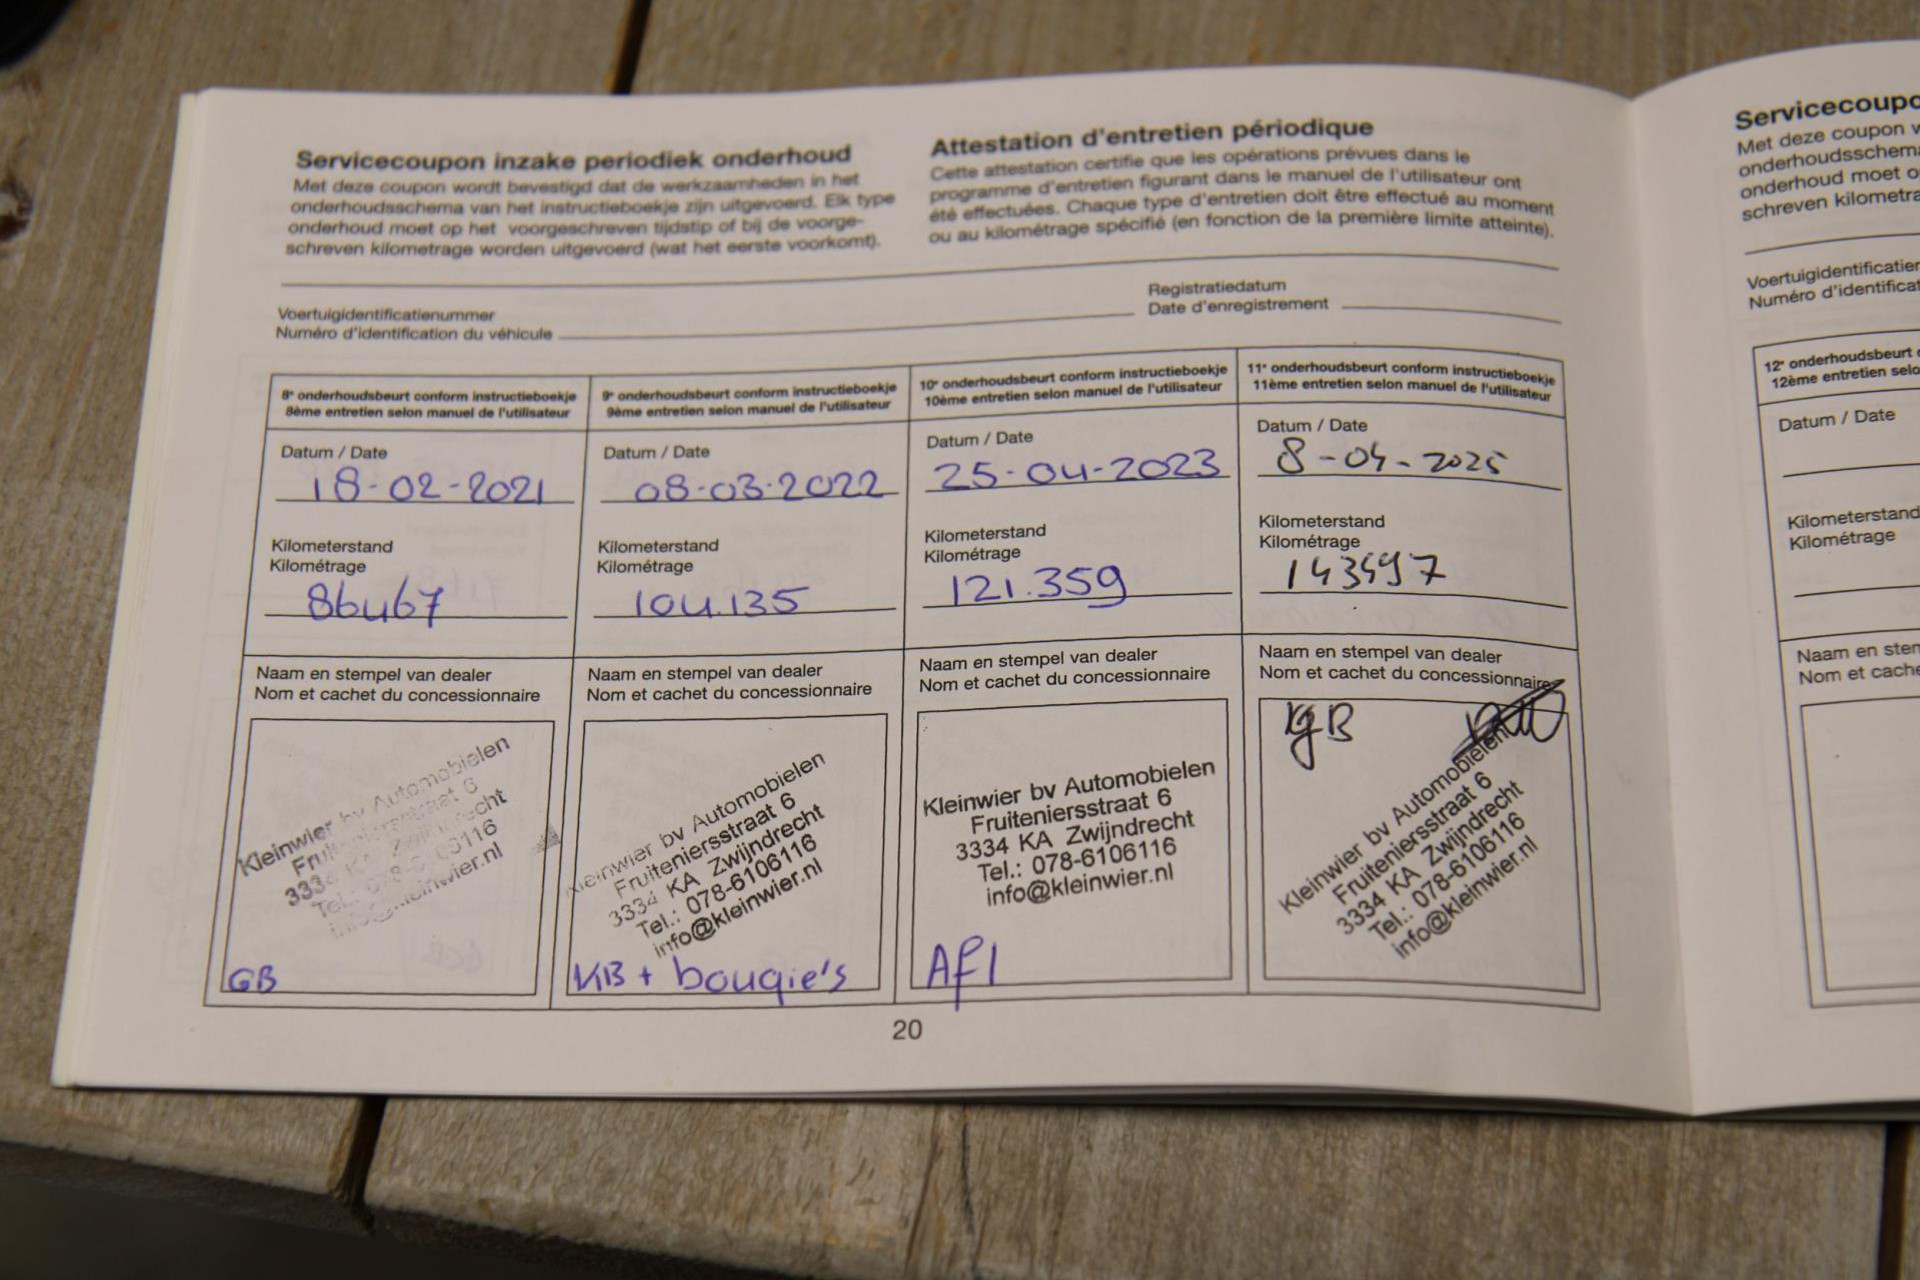 Servicecoupon inzake periodiek onderhoud
Met deze coupon wordt bevestigd dat de werkzaamheden in het
onderhoudsschema van het instructieboekje zijn uitgevoerd. Elk type
onderhoud moet op het voorgeschreven tijdstip of bij de voorge-
schreven kilometrage worden uitgevoerd (wat het eerste voorkomt).
Attestation d'entretien périodique
Cette attestation certifie que les opérations prévues dans le
programme d'entretien figurant dans le manuel de l'utilisateur ont
été effectuées. Chaque type d'entretien doit être effectué au moment
ou au kilométrage spécifié (en fonction de la première limite atteinte).
Voertuigidentificatienummer
Numéro d'identification du véhicule
Registratiedatum
Date d'enregistrement
8e onderhoudsbeurt conform instructieboekje
8ème entretien selon manuel de l'utilisateur
Datum / Date
18-02-2021
Kilometerstand
Kilométrage
86467
Naam en stempel van dealer
Nom et cachet du concessionnaire
Kleinwier bv Automobielen
Fruiteniersstraat 6
3334 KA Zwijndrecht
Tel.: 078-6106116
info@kleinwier.nl
GB
9e onderhoudsbeurt conform instructieboekje
9ème entretien selon manuel de l'utilisateur
Datum / Date
08-03-2022
Kilometerstand
Kilométrage
104.135
Naam en stempel van dealer
Nom et cachet du concessionnaire
Kleinwier bv Automobielen
Fruiteniersstraat 6
3334 KA Zwijndrecht
Tel.: 078-6106116
info@kleinwier.nl
KB + bougie's
10e onderhoudsbeurt conform instructieboekje
10ème entretien selon manuel de l'utilisateur
Datum / Date
25-04-2023
Kilometerstand
Kilométrage
121.359
Naam en stempel van dealer
Nom et cachet du concessionnaire
Kleinwier bv Automobielen
Fruiteniersstraat 6
3334 KA Zwijndrecht
Tel.: 078-6106116
info@kleinwier.nl
Afl
11e onderhoudsbeurt conform instructieboekje
11ème entretien selon manuel de l'utilisateur
Datum / Date
8-04-2025
Kilometerstand
Kilométrage
Naam en stempel van dealer
Nom et cachet du concessionnaire
gB
Kleinwier bv Automobielen
Fruiteniersstraat 6
3334 KA Zwijndrecht
Tel.: 078-6106116
info@kleinwier.nl
20
Servicecoupo
Met deze coupon w
onderhoudsschema
onderhoud moet o
schreven kilometra
Voertuigidentificatien
Numéro d'identificat
12e onderhoudsbeurt c
12ème entretien selo
Datum / Date
Kilometerstand
Kilométrage
Naam en stem
Nom et cache